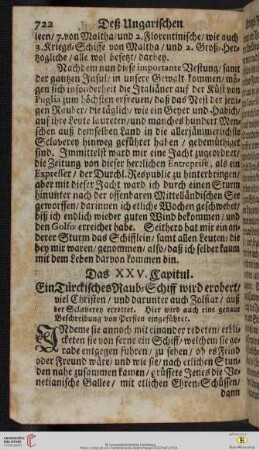 722 Deß Ungarischen
leen/ 7. von Maltha/ und 2. Florentinische/ wie auch
3. Kriegs-Schiffe von Maltha/ und 2. Groß-Her-
tzogliche/ alle wol besetzt/ darbey.
Nachdem nun diese importante Vestung/ samt
der gantzen Insul/ in unsere Gewalt kommen/ mö-
gen sich insonderheit die Italiäner auf der Küst von
Puglia zum höchsten erfreuen/ daß das Nest der jeni-
gen Rauber/ die täglich/ wie ein Geyer und Habicht/
auf ihre Leute laureten/ und manches hundert Men-
schen auß demselben Land in die allerjämmerlichste
Sclaverey hinweg geführet haben/ gedemüthiget
sind. Immittelst ward mir eine Jacht zugeordnet/
die Zeitung von dieser herrlichen Entreprise, als ein
Expresser/ der Durchl. Respublic zu hinterbringen/
aber mit dieser Jacht ward ich durch einen Sturm
hinunter nach der offenbaren Mittelländischen See
geworffen/ darinnen ich etliche Wochen geschwebet/
biß ich endlich wieder guten Wind bekommen/ und
den Golfo erreichet habe. Seither hat mir ein an-
derer Sturm das Schifflein/ samt allen Leuten/ die
bey mir waren/ genommen/ also daß ich selber kaum
mit dem Leben darvon kommen bin.
Das XXV. Capitul.
Ein Türckisches Raub-Schiff wird erobert/
viel Christen/ und darunter auch Zolffar/ auß
der Sclaverey errettet. Hier wird auch eine genaue
Beschreibung von Persien eingeführet.
INdeme sie annoch mit einander redeten/ erbli-
cketen sie von ferne ein Schiff/ welchem sie ge-
rade entgegen fuhren/ zu sehen/ ob es Feind
oder Freund wäre/ und wie sie/ nach etlichen Stun-
den nahe zusammen kamen/ grüssete Jenes die Ve-
netianische Gallee/ mit etlichen Ehren-Schüssen/
dann